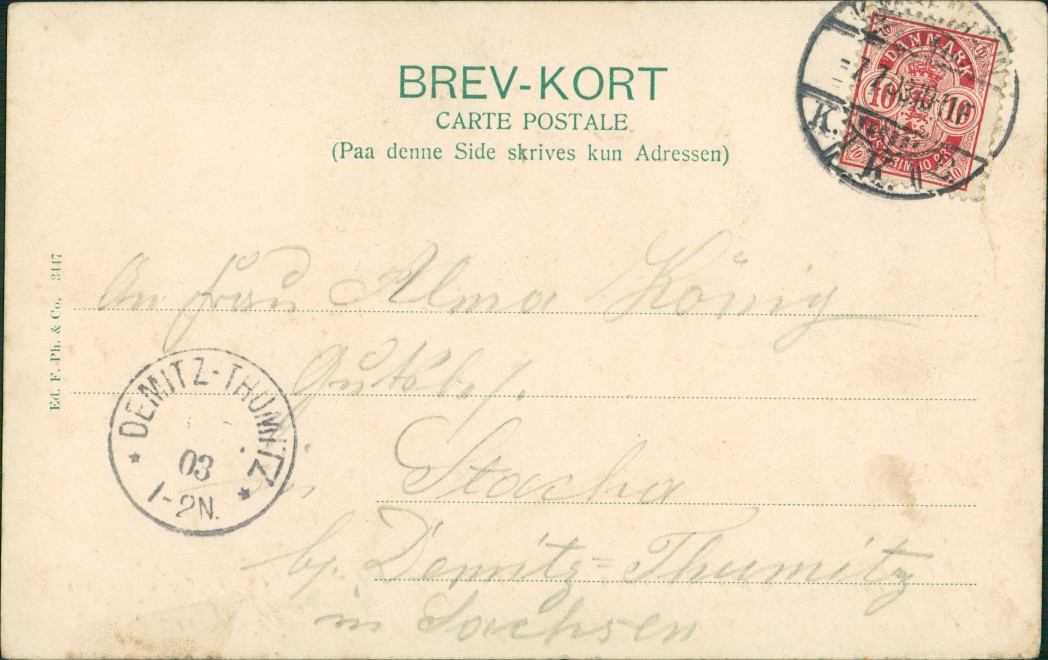 BREV-KORT
CARTE POSTALE
(Paa denne Side skrives kun Adressen)
DANMARK
10 10
POSTFRIM 10 ØR
K.
K.
Ed. F. Ph. & Co. 3447
An Frau Alma König
Gutsbes.
in Stacha
b/. Demitz=Thumitz
in Sachsen
DEMITZ-THUMITZ
03
1-2N.